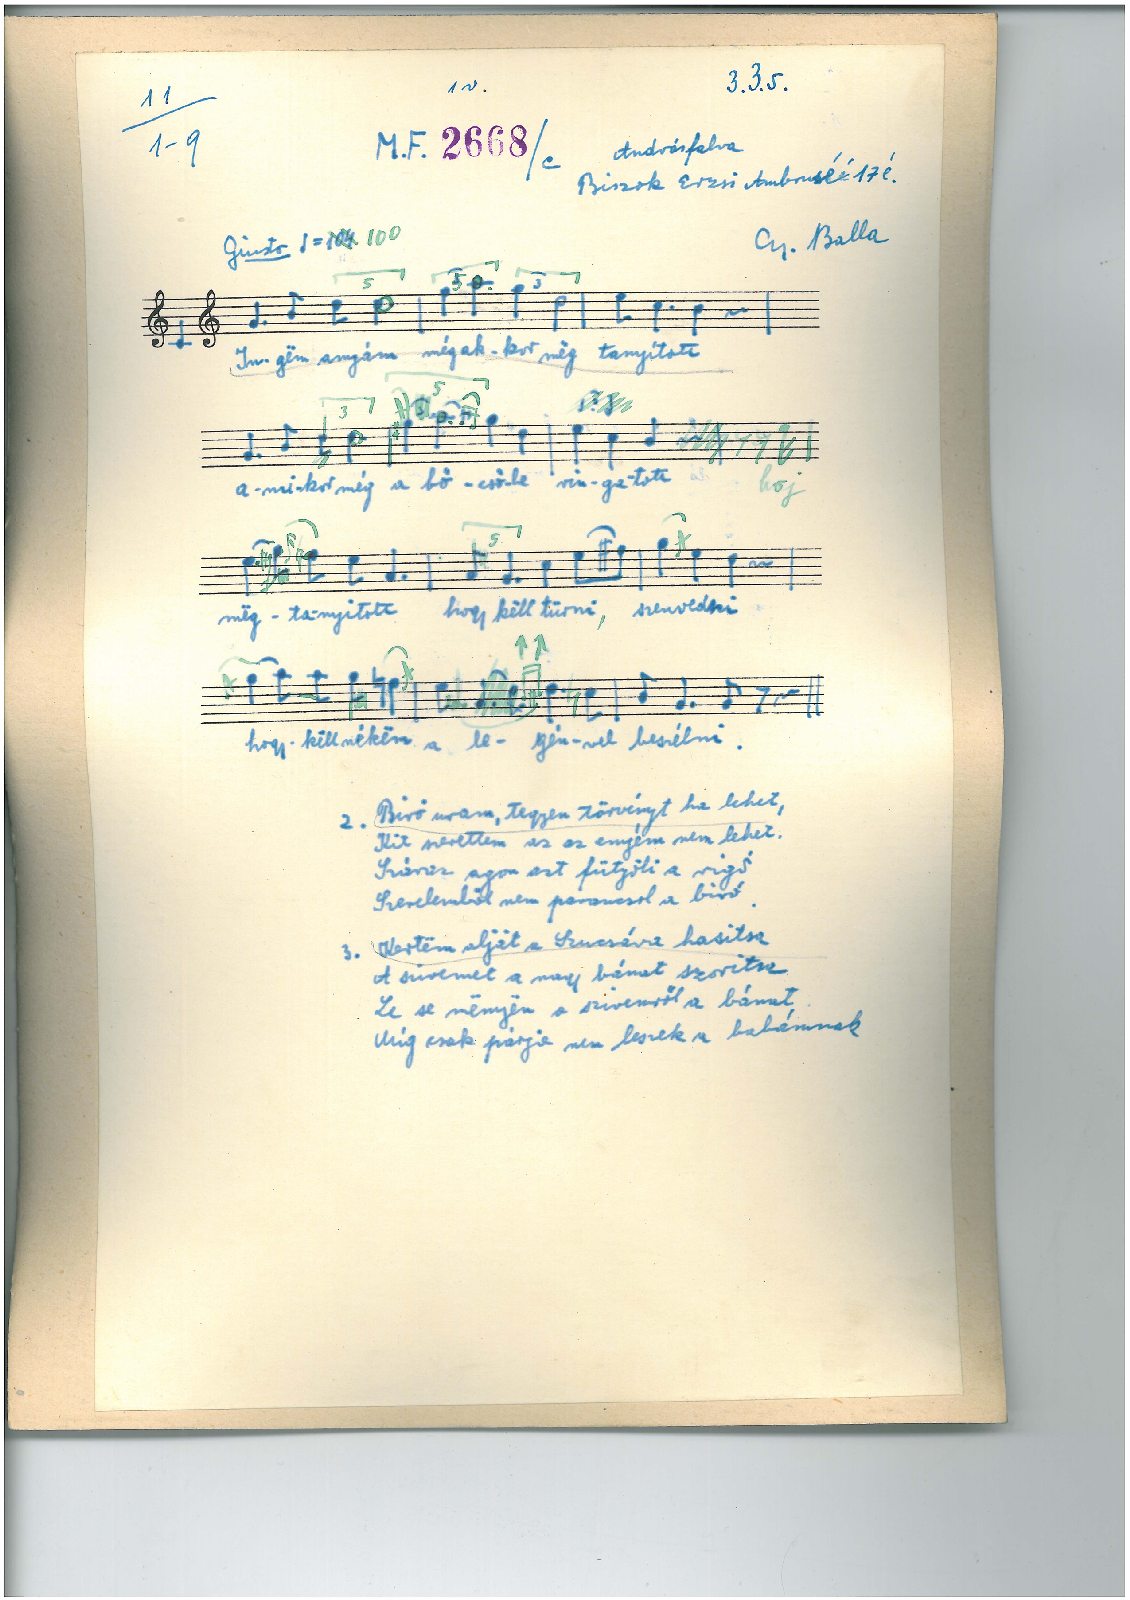 11 10. 3.3.5.
1-9 M.F. 2668/c Andrásfalva
Biszok Erzsi Ambrusék 17 é.
Giusto ♩= 100 Gy. Balla
5 5 3
In-gëm anyám mégak-kor mëg tanyitott
3 5
a-mi-kor még a bö-csöbe rin-ga-tott hoj
5 5
mëg-ta-nyitott hogy këll türni, szenvedni
hogy këll nékëm a le-gén-vel beszélni.
2. Biró uram, tegyen törvényt ha lehet,
Kit szerettem az az enyém nem lehet.
Száraz ágon azt fütyöli a rigó
Szerelemböl nem parancsol a biró.
3. Kertëm alját a Szucsáva hasitsa
A szivemet a nagy bánat szoritsa
Le se mënyën a szivemröl a bánat
Mig csak párja nem leszek a babámnak